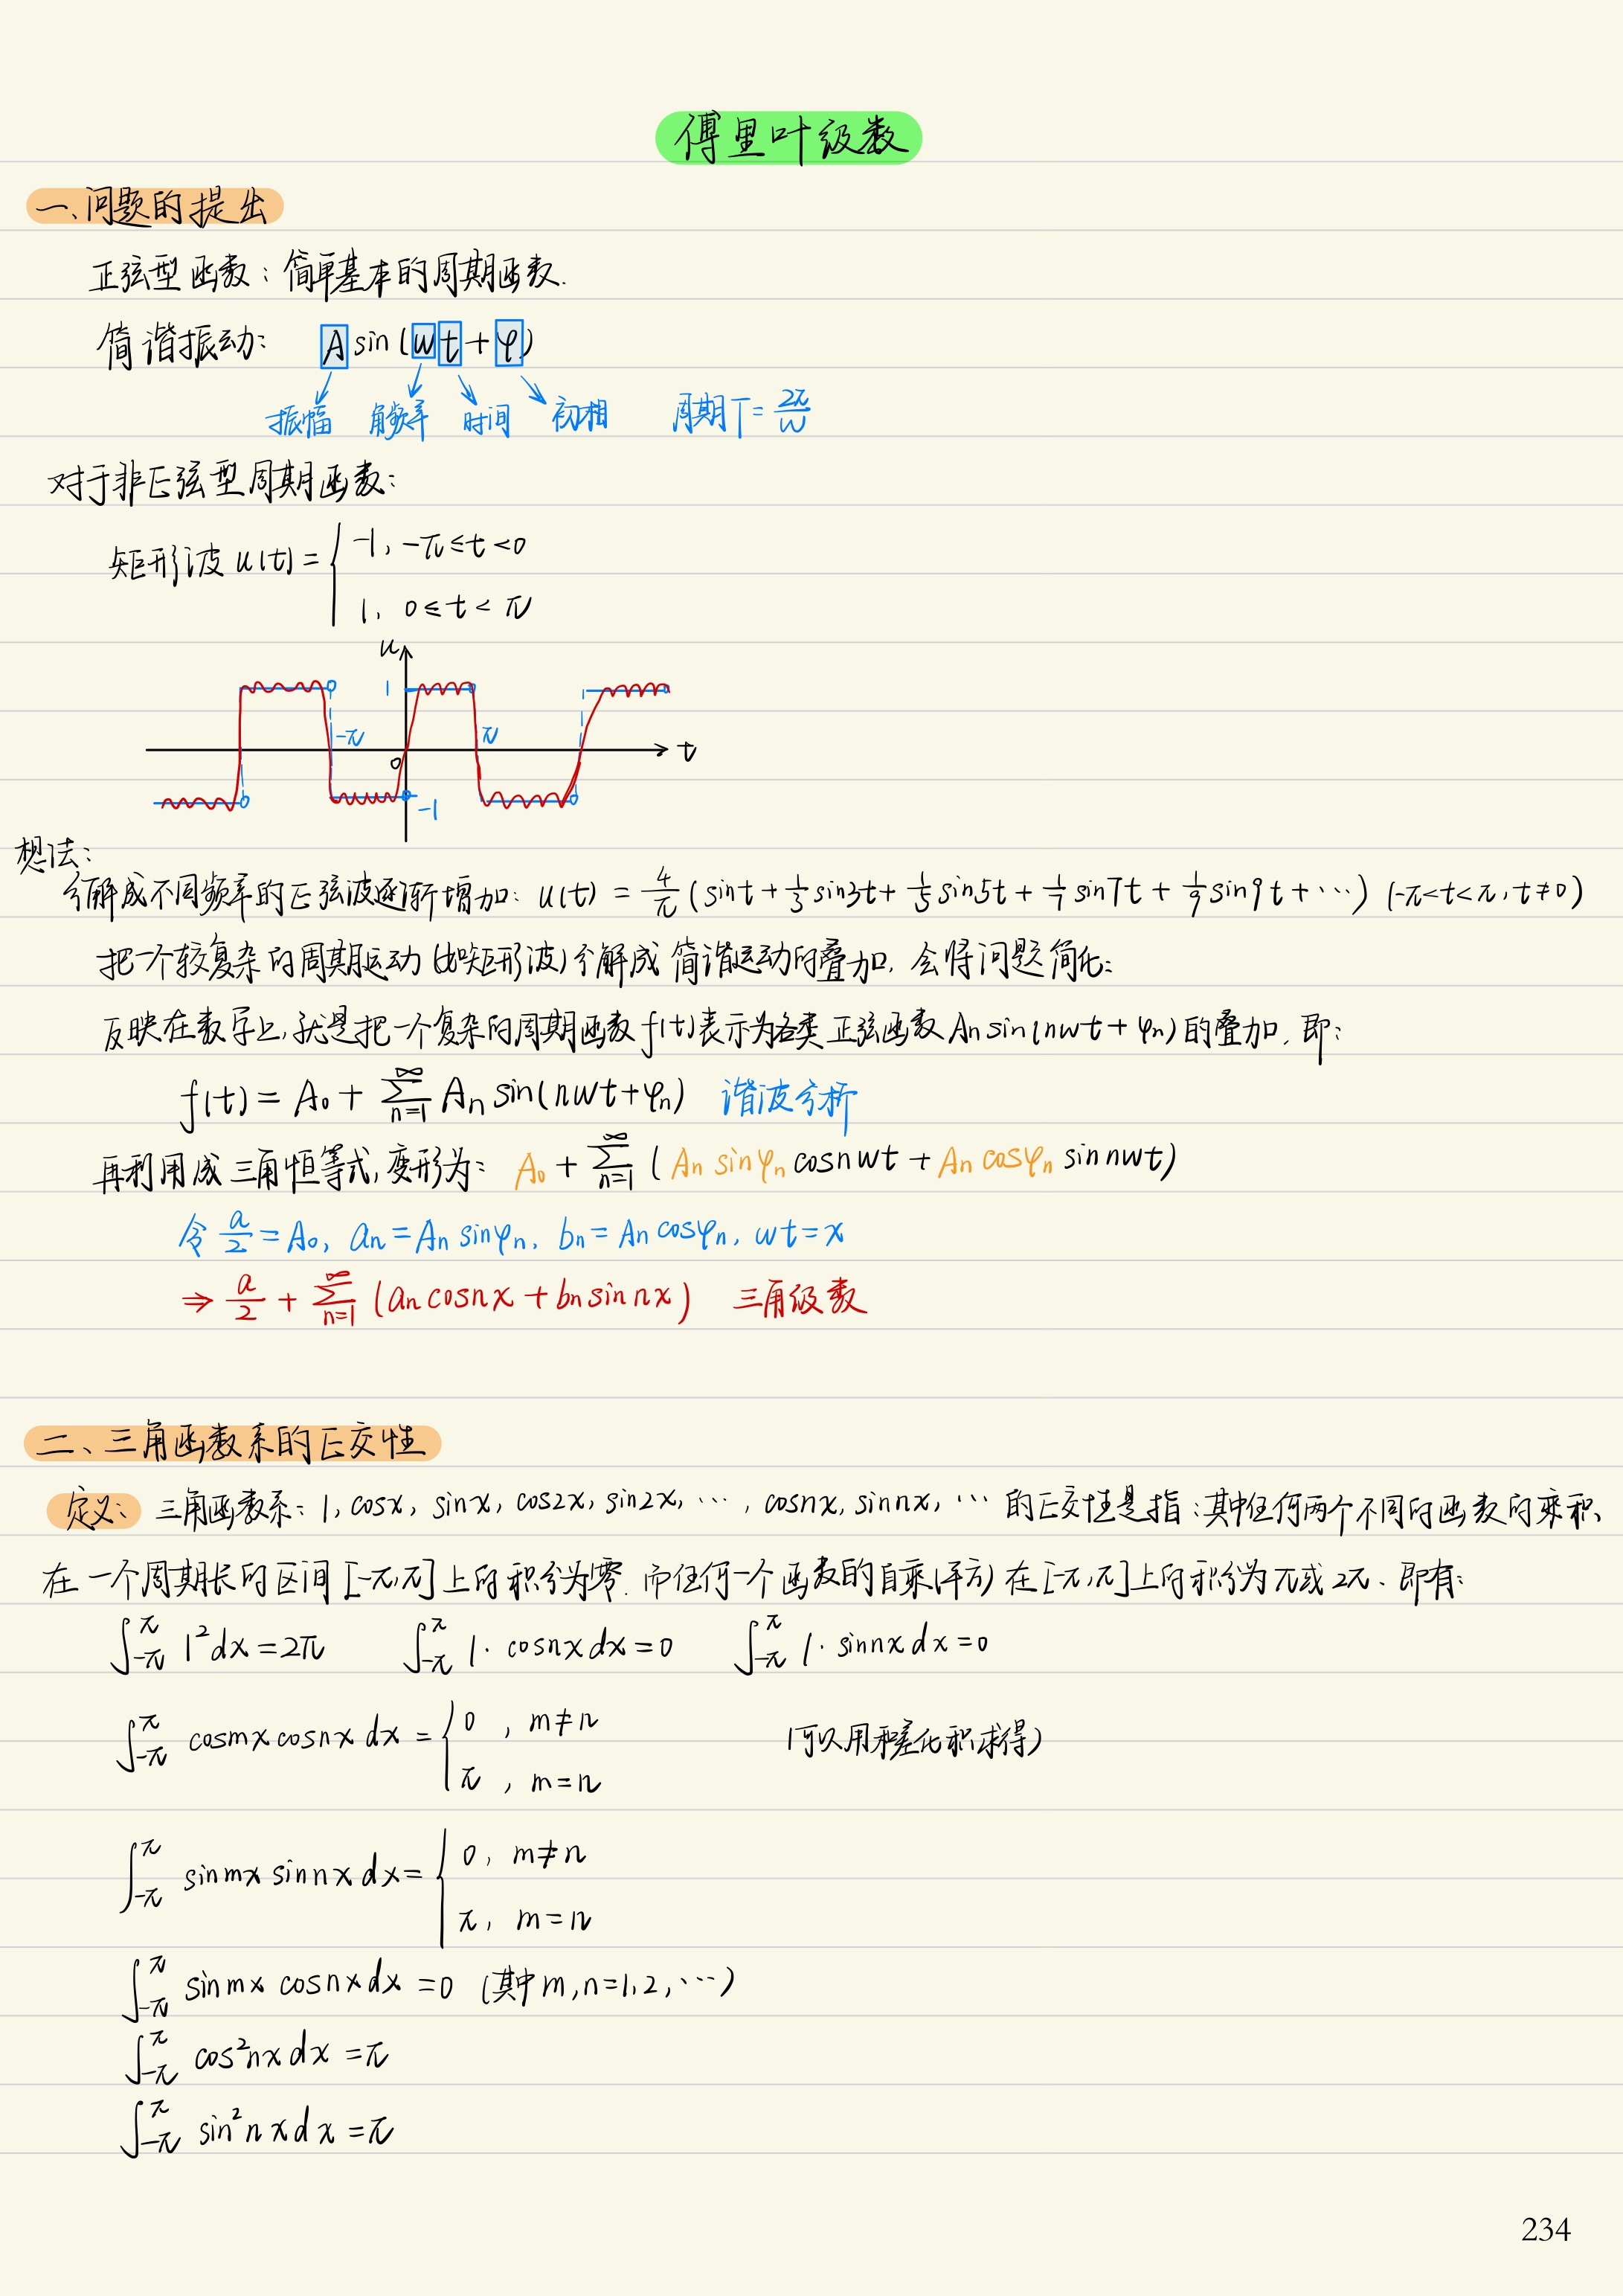 傅里叶级数
一、问题的提出
正弦型函数：简单基本的周期函数.
简谐振动： A sin (wt+φ)
振幅 角频率 时间 初相 周期T=2π/w
对于非正弦型周期函数：
矩形波 u(t) = { -1, -π≤t<0
1, 0≤t<π
u
1
-π
π
0
t
-1
想法：
分解成不同频率的正弦波逐渐增加： u(t) = 4/π (sint + 1/3 sin3t + 1/5 sin5t + 1/7 sin7t + 1/9 sin9t + ⋯) (-π<t<π, t≠0)
把一个较复杂的周期运动（如矩形波）分解成 简谐运动的叠加, 会将问题简化：
反映在数学上, 就是把一个复杂的周期函数 f(t) 表示为各类 正弦函数 An sin(nwt + φn) 的叠加, 即：
f(t) = A₀ + ∑_{n=1}^{∞} An sin(nwt+φn) 谐波分析
再利用成 三角恒等式, 变形为： A₀ + ∑_{n=1}^{∞} ( An sinφn cosnwt + An cosφn sin nwt)
令 a/2 = A₀, an = An sinφn, bn = An cosφn, wt = x
⇒ a/2 + ∑_{n=1}^{∞} (an cosnx + bn sin nx) 三角级数
二、三角函数系的正交性
定义： 三角函数系： 1, cosx, sinx, cos2x, sin2x, ⋯, cosnx, sinnx, ⋯ 的正交性是指：其中任何两个不同的函数的乘积、
在一个周期长的区间 [-π,π] 上的积分为零. 而任何一个函数的自乘(平方) 在[-π,π]上的积分为π或2π. 即有：
∫_{-π}^{π} 1² dx = 2π ∫_{-π}^{π} 1· cosnx dx = 0 ∫_{-π}^{π} 1· sinnx dx = 0
∫_{-π}^{π} cosmx cosnx dx = { 0 , m≠n （可以用和差化积求得）
π , m=n
∫_{-π}^{π} sinmx sinnx dx = { 0, m≠n
π, m=n
∫_{-π}^{π} sinmx cosnx dx = 0 (其中 m,n=1,2,⋯)
∫_{-π}^{π} cos²nx dx = π
∫_{-π}^{π} sin²nx dx = π
234